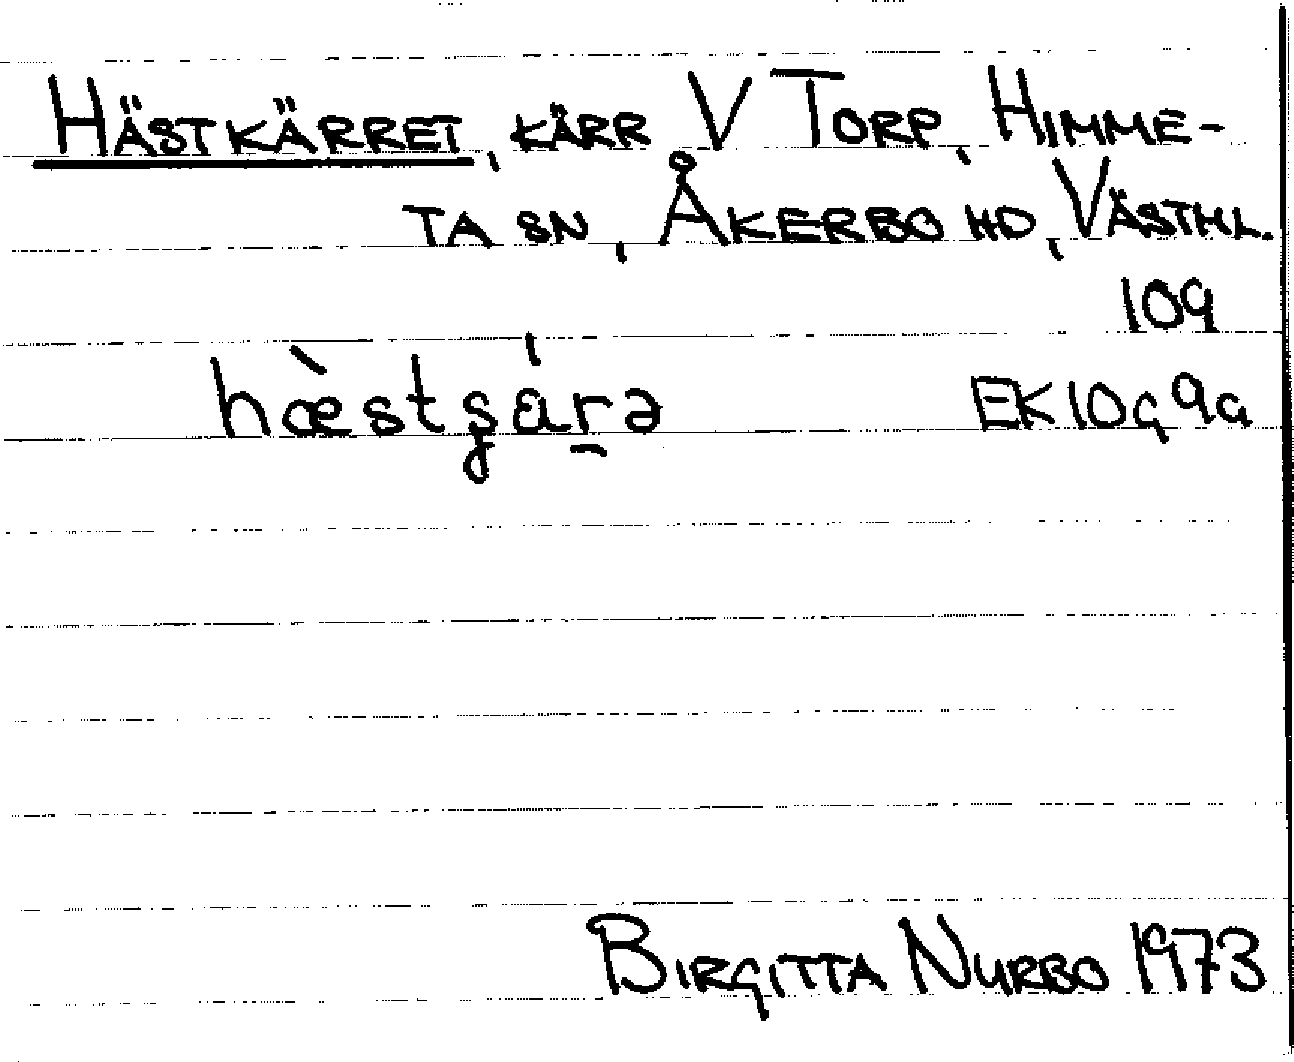 HÄSTKÄRRET, KÄRR, V TORP, HIMME-
TA SN, ÅKERBO HD, VÄSTML.
109
hæ̀stʂáṟə
EK10g9a
BIRGITTA NURBO 1973